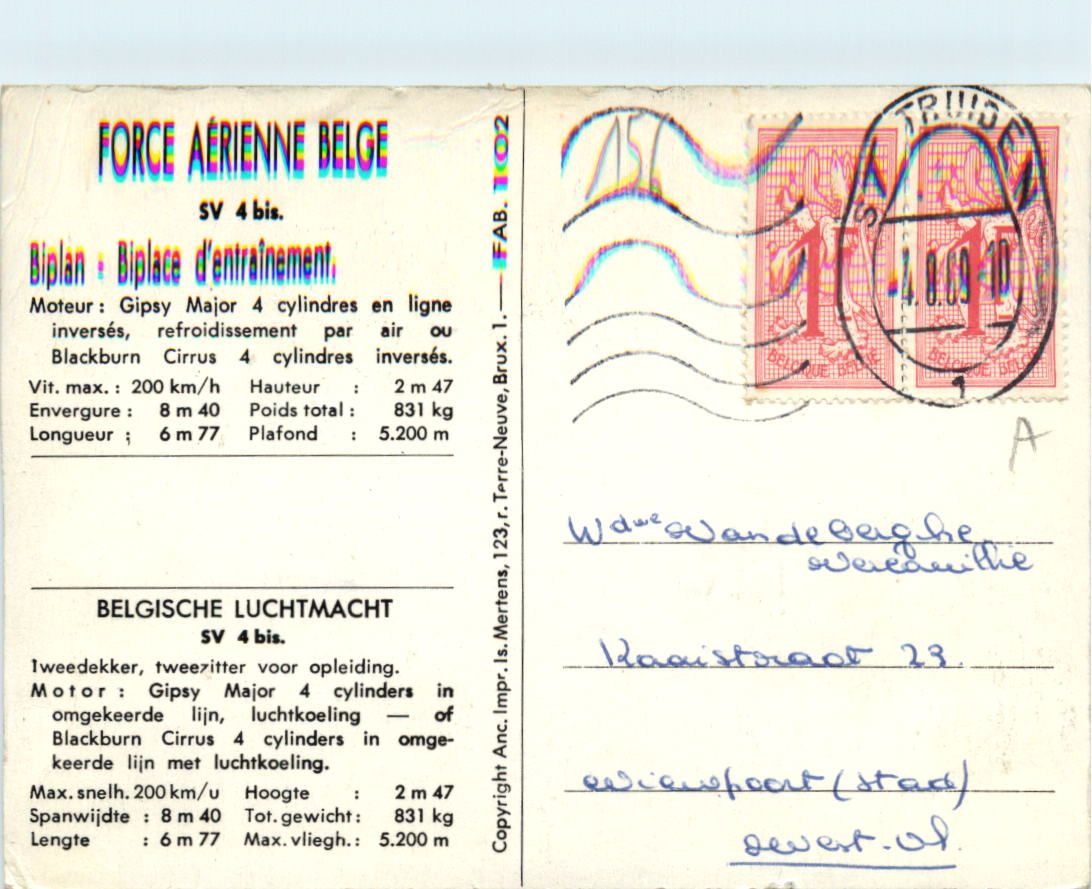 FORCE AÉRIENNE BELGE
SV 4 bis.
Biplan - Biplace d'entraînement.
Moteur : Gipsy Major 4 cylindres en ligne
inversés, refroidissement par air ou
Blackburn Cirrus 4 cylindres inversés.
Vit. max. : 200 km/h Hauteur : 2 m 47
Envergure : 8 m 40 Poids total : 831 kg
Longueur : 6 m 77 Plafond : 5.200 m
BELGISCHE LUCHTMACHT
SV 4 bis.
Tweedekker, tweezitter voor opleiding.
Motor : Gipsy Major 4 cylinders in
omgekeerde lijn, luchtkoeling — of
Blackburn Cirrus 4 cylinders in omge-
keerde lijn met luchtkoeling.
Max. snelh. 200 km/u Hoogte : 2 m 47
Spanwijdte : 8 m 40 Tot. gewicht : 831 kg
Lengte : 6 m 77 Max. vliegh. : 5.200 m
Copyright Anc. Impr. Is. Mertens, 123, r. Terre-Neuve, Brux. 1. — FAB. 102
TRUIDEN
1
1F 1F
BELGIQUE BELGIE BELGIQUE BELGIE
A
Wdwe Vandeberghe
Kaaistraat 23.
Nieuwpoort (stad)
West-Vl.